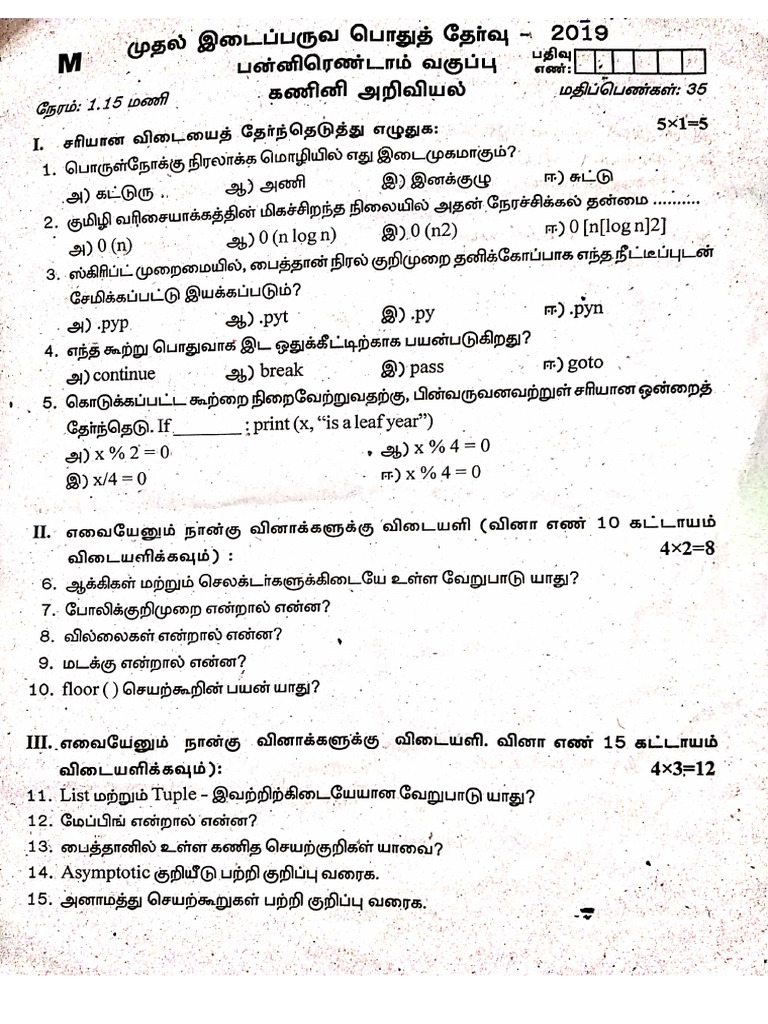 முதல் இடைப்பருவ பொதுத் தேர்வு - 2019
M பன்னிரெண்டாம் வகுப்பு பதிவு எண்:
நேரம்: 1.15 மணி கணினி அறிவியல் மதிப்பெண்கள்: 35
I. சரியான விடையைத் தேர்ந்தெடுத்து எழுதுக: 5×1=5
1. பொருள்நோக்கு நிரலாக்க மொழியில் எது இடைமுகமாகும்?
அ) கட்டுரு ஆ) அணி இ) இனக்குழு ஈ) சுட்டு
2. குமிழி வரிசையாக்கத்தின் மிகச்சிறந்த நிலையில் அதன் நேரச்சிக்கல் தன்மை ..........
அ) 0 (n) ஆ) 0 (n log n) இ) 0 (n2) ஈ) 0 [n[log n]2]
3. ஸ்கிரிப்ட் முறைமையில், பைத்தான் நிரல் குறிமுறை தனிக்கோப்பாக எந்த நீட்டீப்புடன்
சேமிக்கப்பட்டு இயக்கப்படும்?
அ) .pyp ஆ) .pyt இ) .py ஈ) .pyn
4. எந்த கூற்று பொதுவாக இட ஒதுக்கீட்டிற்காக பயன்படுகிறது?
அ) continue ஆ) break இ) pass ஈ) goto
5. கொடுக்கப்பட்ட கூற்றை நிறைவேற்றுவதற்கு, பின்வருவனவற்றுள் சரியான ஒன்றைத்
தேர்ந்தெடு. If ________ : print (x, “is a leaf year”)
அ) x % 2 = 0 ஆ) x % 4 = 0
இ) x/4 = 0 ஈ) x % 4 = 0
II. எவையேனும் நான்கு வினாக்களுக்கு விடையளி (வினா எண் 10 கட்டாயம்
விடையளிக்கவும்) : 4×2=8
6. ஆக்கிகள் மற்றும் செலக்டர்களுக்கிடையே உள்ள வேறுபாடு யாது?
7. போலிக்குறிமுறை என்றால் என்ன?
8. வில்லைகள் என்றால் என்ன?
9. மடக்கு என்றால் என்ன?
10. floor ( ) செயற்கூறின் பயன் யாது?
III. எவையேனும் நான்கு வினாக்களுக்கு விடையளி. வினா எண் 15 கட்டாயம்
விடையளிக்கவும்): 4×3=12
11. List மற்றும் Tuple – இவற்றிற்கிடையேயான வேறுபாடு யாது?
12. மேப்பிங் என்றால் என்ன?
13. பைத்தானில் உள்ள கணித செயற்குறிகள் யாவை?
14. Asymptotic குறியீடு பற்றி குறிப்பு வரைக.
15. அனாமத்து செயற்கூறுகள் பற்றி குறிப்பு வரைக.